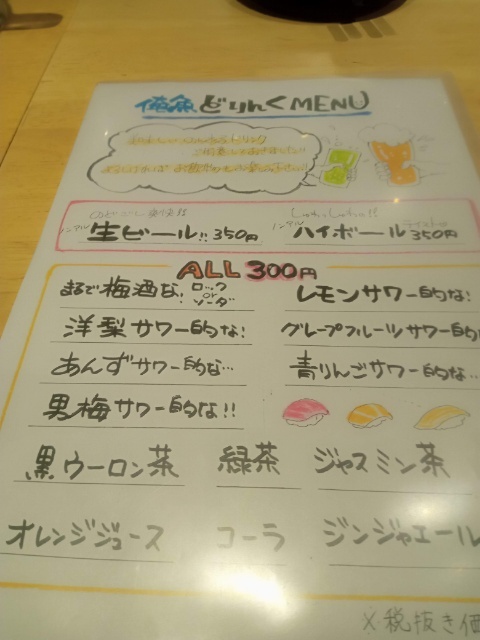 俺魚 どりんくMENU
のどごし爽快!!
ノンアル 生ビール!! 350円
しゅわっしゅわ!!
ノンアル ハイボール テイスト 350円
ALL 300円
まるで梅酒な! ロック or ソーダ
レモンサワー的な!
洋梨サワー的な!
グレープフルーツサワー的
あんずサワー的な…
青りんごサワー的な…
男梅サワー的な!!
黒ウーロン茶 緑茶 ジャスミン茶
オレンジジュース コーラ ジンジャエール
※税抜き価